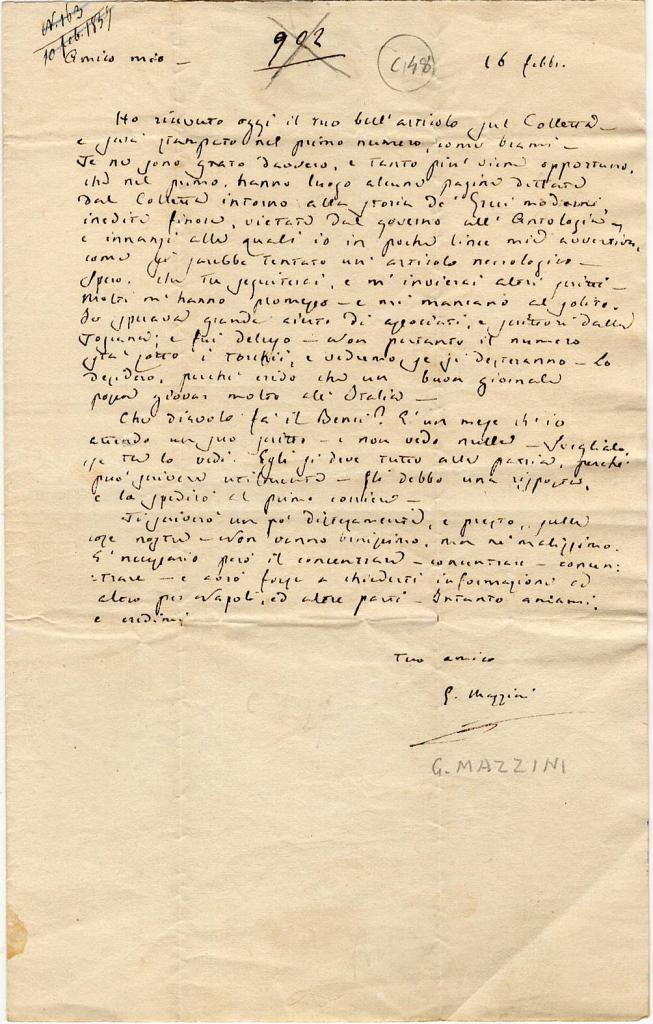 N. 163
10 feb. 1834
902
C148
Amico mio —
16 febb.
Ho ricevuto oggi il tuo bell'articolo sul Colletta —
e sarà stampato nel primo numero, come brami —
Te ne sono grato davvero, e tanto più viene opportuno,
che nel primo, hanno luogo alcune pagine dettate
dal Colletta intorno alla storia de' Greci moderni
inedite finora, vietate dal governo all'Antologia —
e innanzi alle quali io in poche linee mie avvertiva,
come si sarebbe tentato un articolo necrologico —
Spero che tu seguiterai, e m'invierai altri scritti —
Molti m'hanno promesso — e mi mancano al solito.
Io sperava grande aiuto di associati, e scrittori dalla
Toscana; e fui deluso — Non pertanto il numero
sta sotto i torchii, e vedremo se si desteranno — Lo
desidero, perché credo che un buon giornale
possa giovar molto all'Italia —
Che diavolo fa il Benci? È un mese ch'io
attendo un suo scritto — e non vedo nulla — Sveglialo,
se tu lo vedi. Egli si deve tutto alla patria, perché
può scrivere utilmente — Gli debbo una risposta,
e la spedirò al primo corriere —
Ti scriverò un po' distesamente, e presto, sulle
cose nostre — Non vanno benissimo, ma né malissimo.
È necessario però il concentrare — concentrare — concen:
:trare — e avrò forse a chiederti informazioni ed
altro per Napoli, ed altre parti — Intanto amami,
e credimi
Tuo amico
G. Mazzini
G. MAZZINI